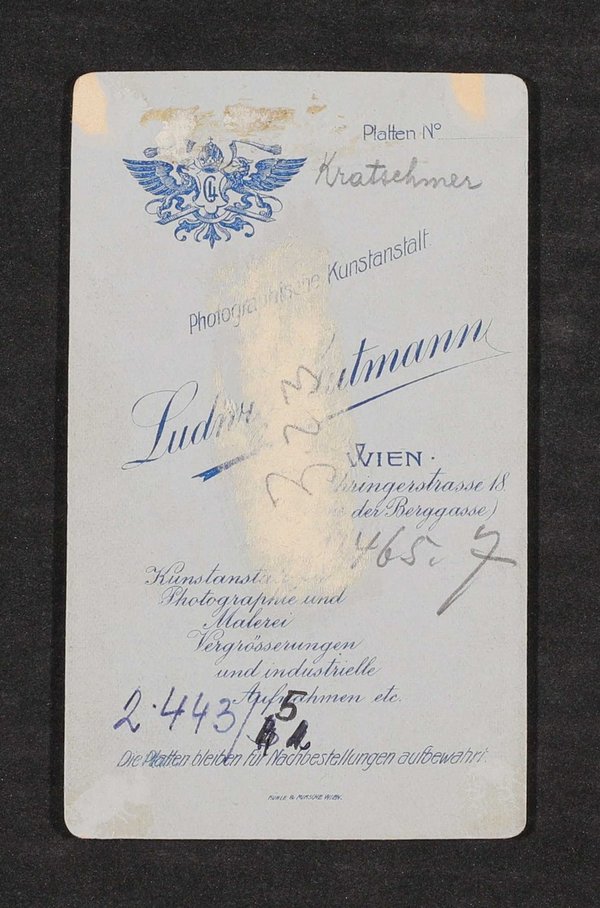 Platten Nº
Kratschmer
Photographische Kunstanstalt
Ludwig Gutmann
WIEN.
hringerstrasse 18
der Berggasse)
323
465. 7
Kunstanst
Photographie und
Malerei
Vergrösserungen
und industrielle
Aufnahmen etc.
2.443/5
Die Platten bleiben für Nachbestellungen aufbewahrt.